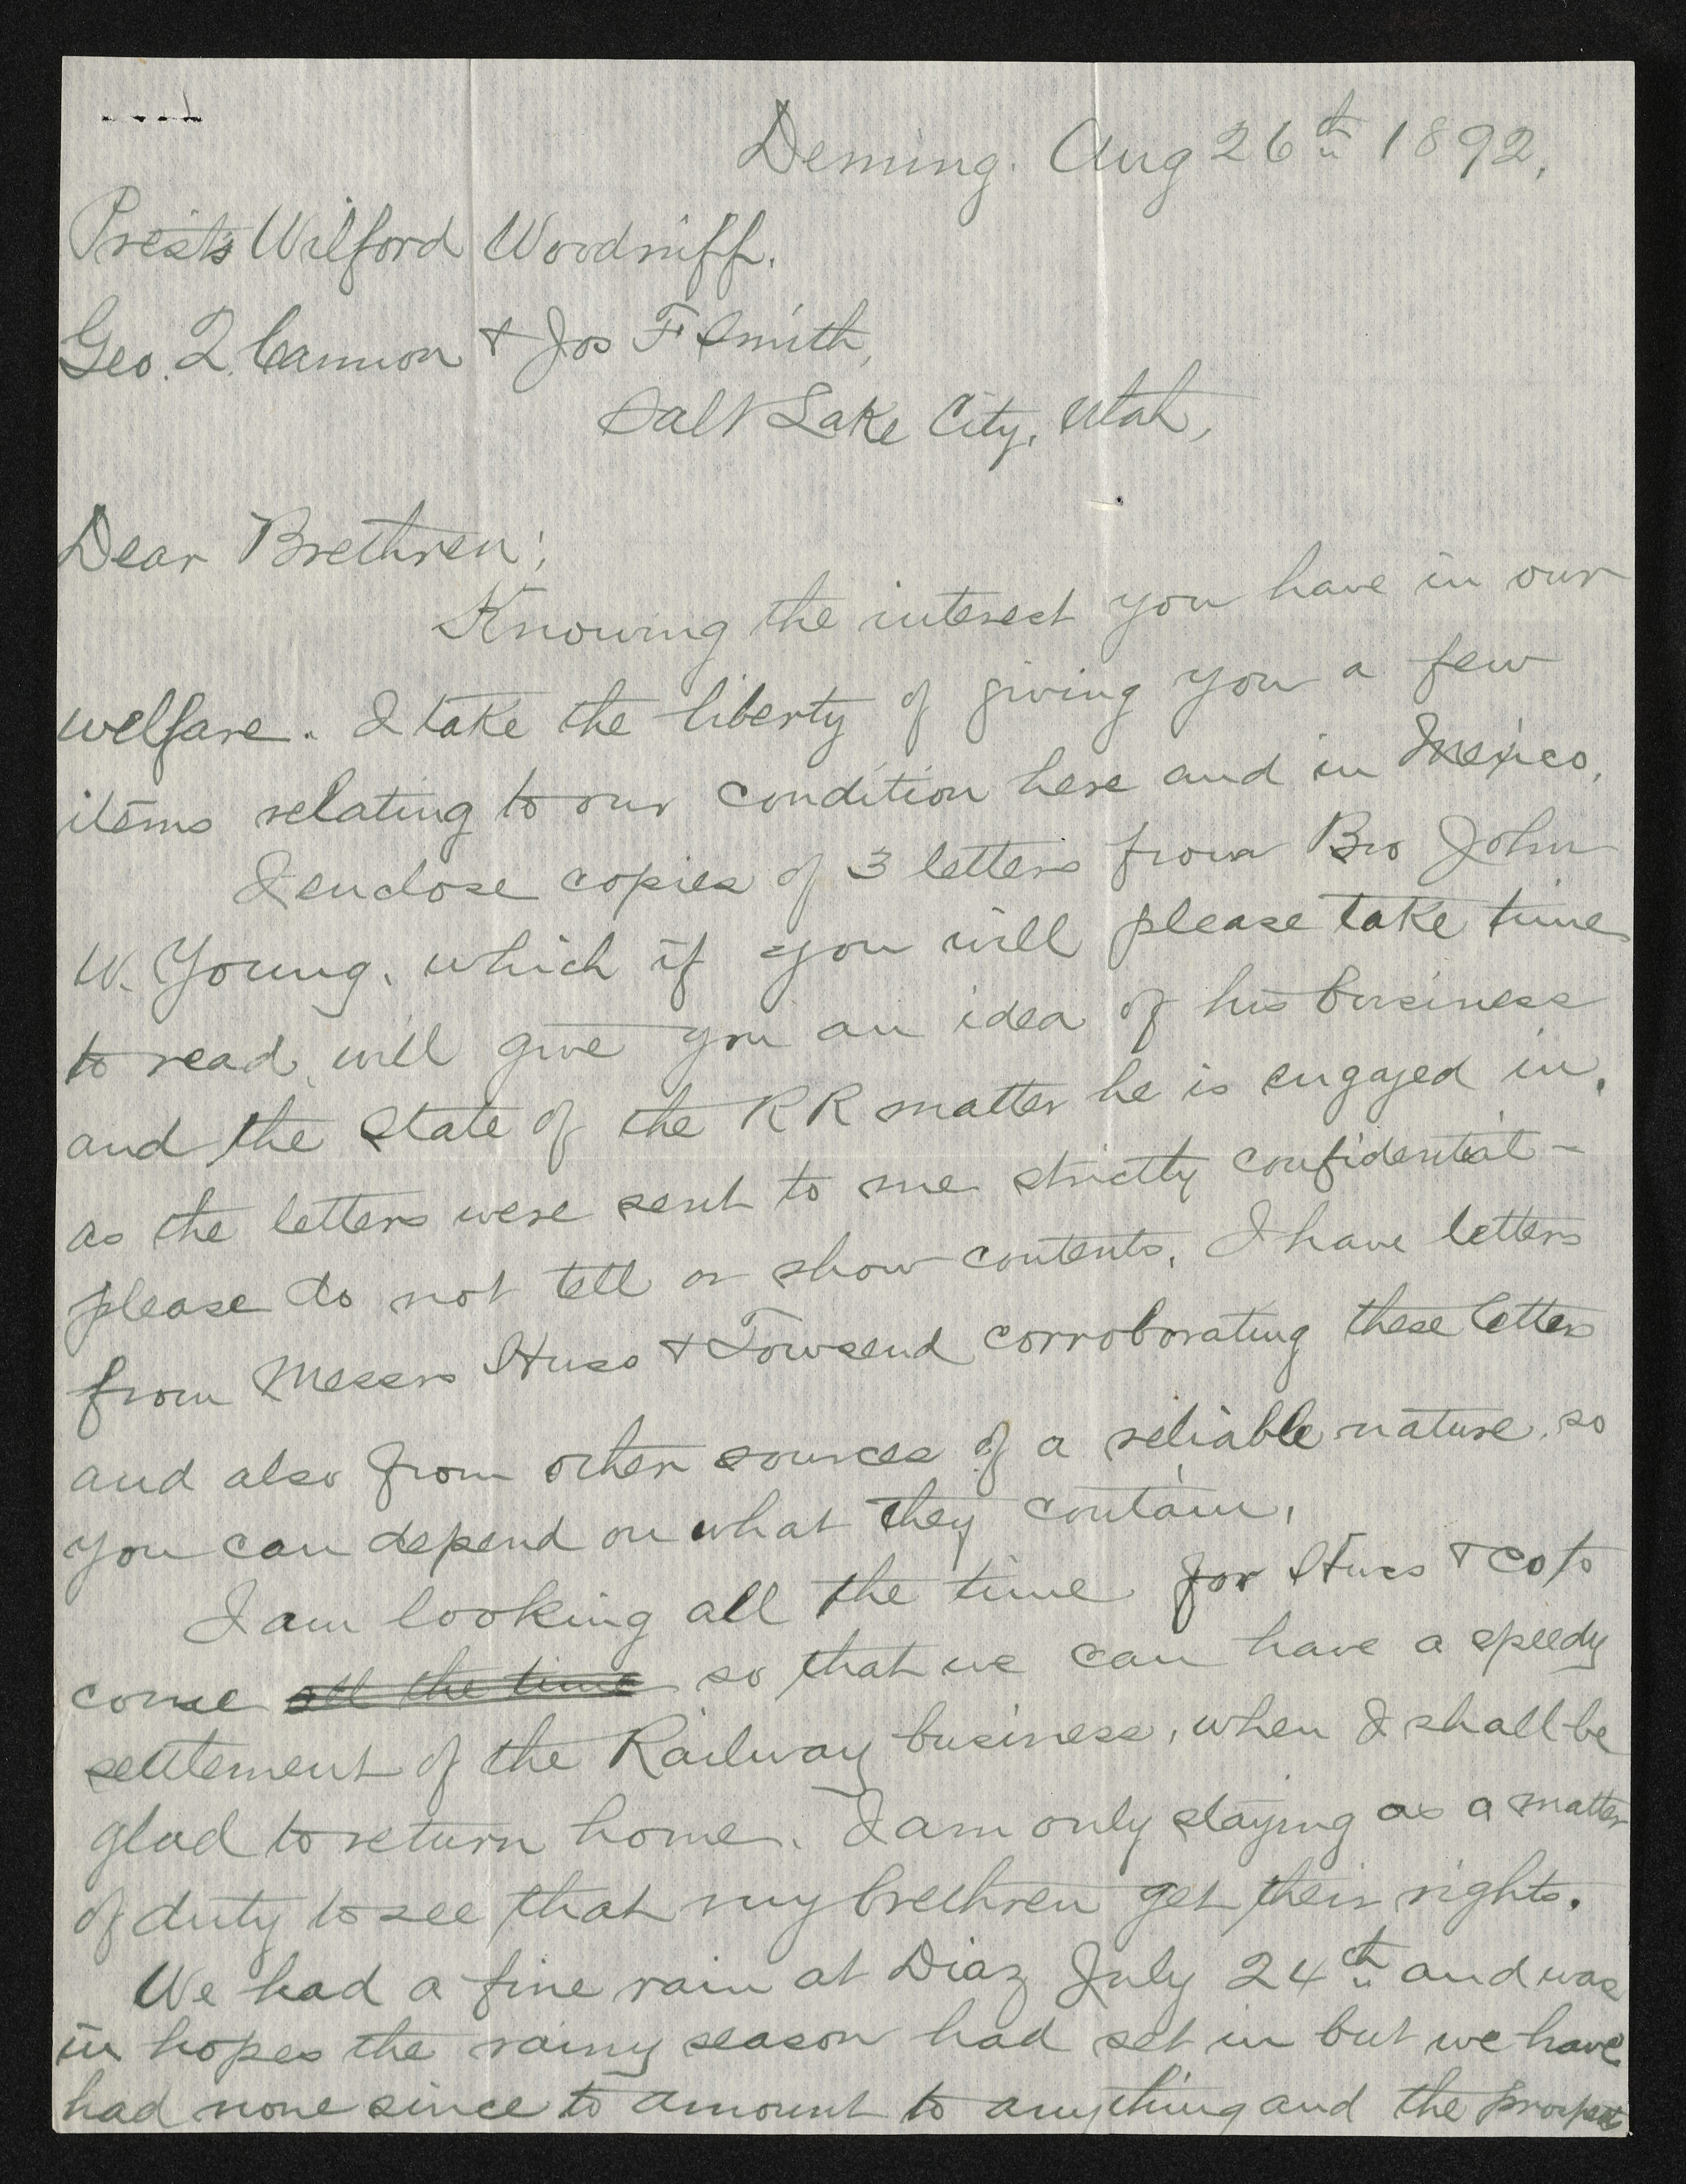 Deming. Aug 26th 1892,
Prests Wilford Woodruff.
Geo. Q. Cannon & Jos F Smith,
Salt Lake City, Utah,
Dear Brethren;
Knowing the interest you have in our
welfare. I take the liberty of giving you a few
items relating to our condition here and in Mexico.
I enclose copies of 3 letters from Bro John
W. Young, which if you will please take time
to read, will give you an idea of his business
and the State of the RR matter he is engaged in.
as the letters were sent to me strictly confidential -
please do not tell or show contents. I have letters
from Messrs Huss & Towsend corroborating these letters
and also from other sources of a reliable nature, so
you can depend on what they contain.
I am looking all the time for Huss & Co to
come all the time so that we can have a speedy
settlement of the Railway business, when I shall be
glad to return home. I am only staying as a matter
of duty to see that my brethren get their rights.
We had a fine rain at Diaz July 24th and was
in hopes the rainy season had set in but we have
had none since to amount to anything and the prospects